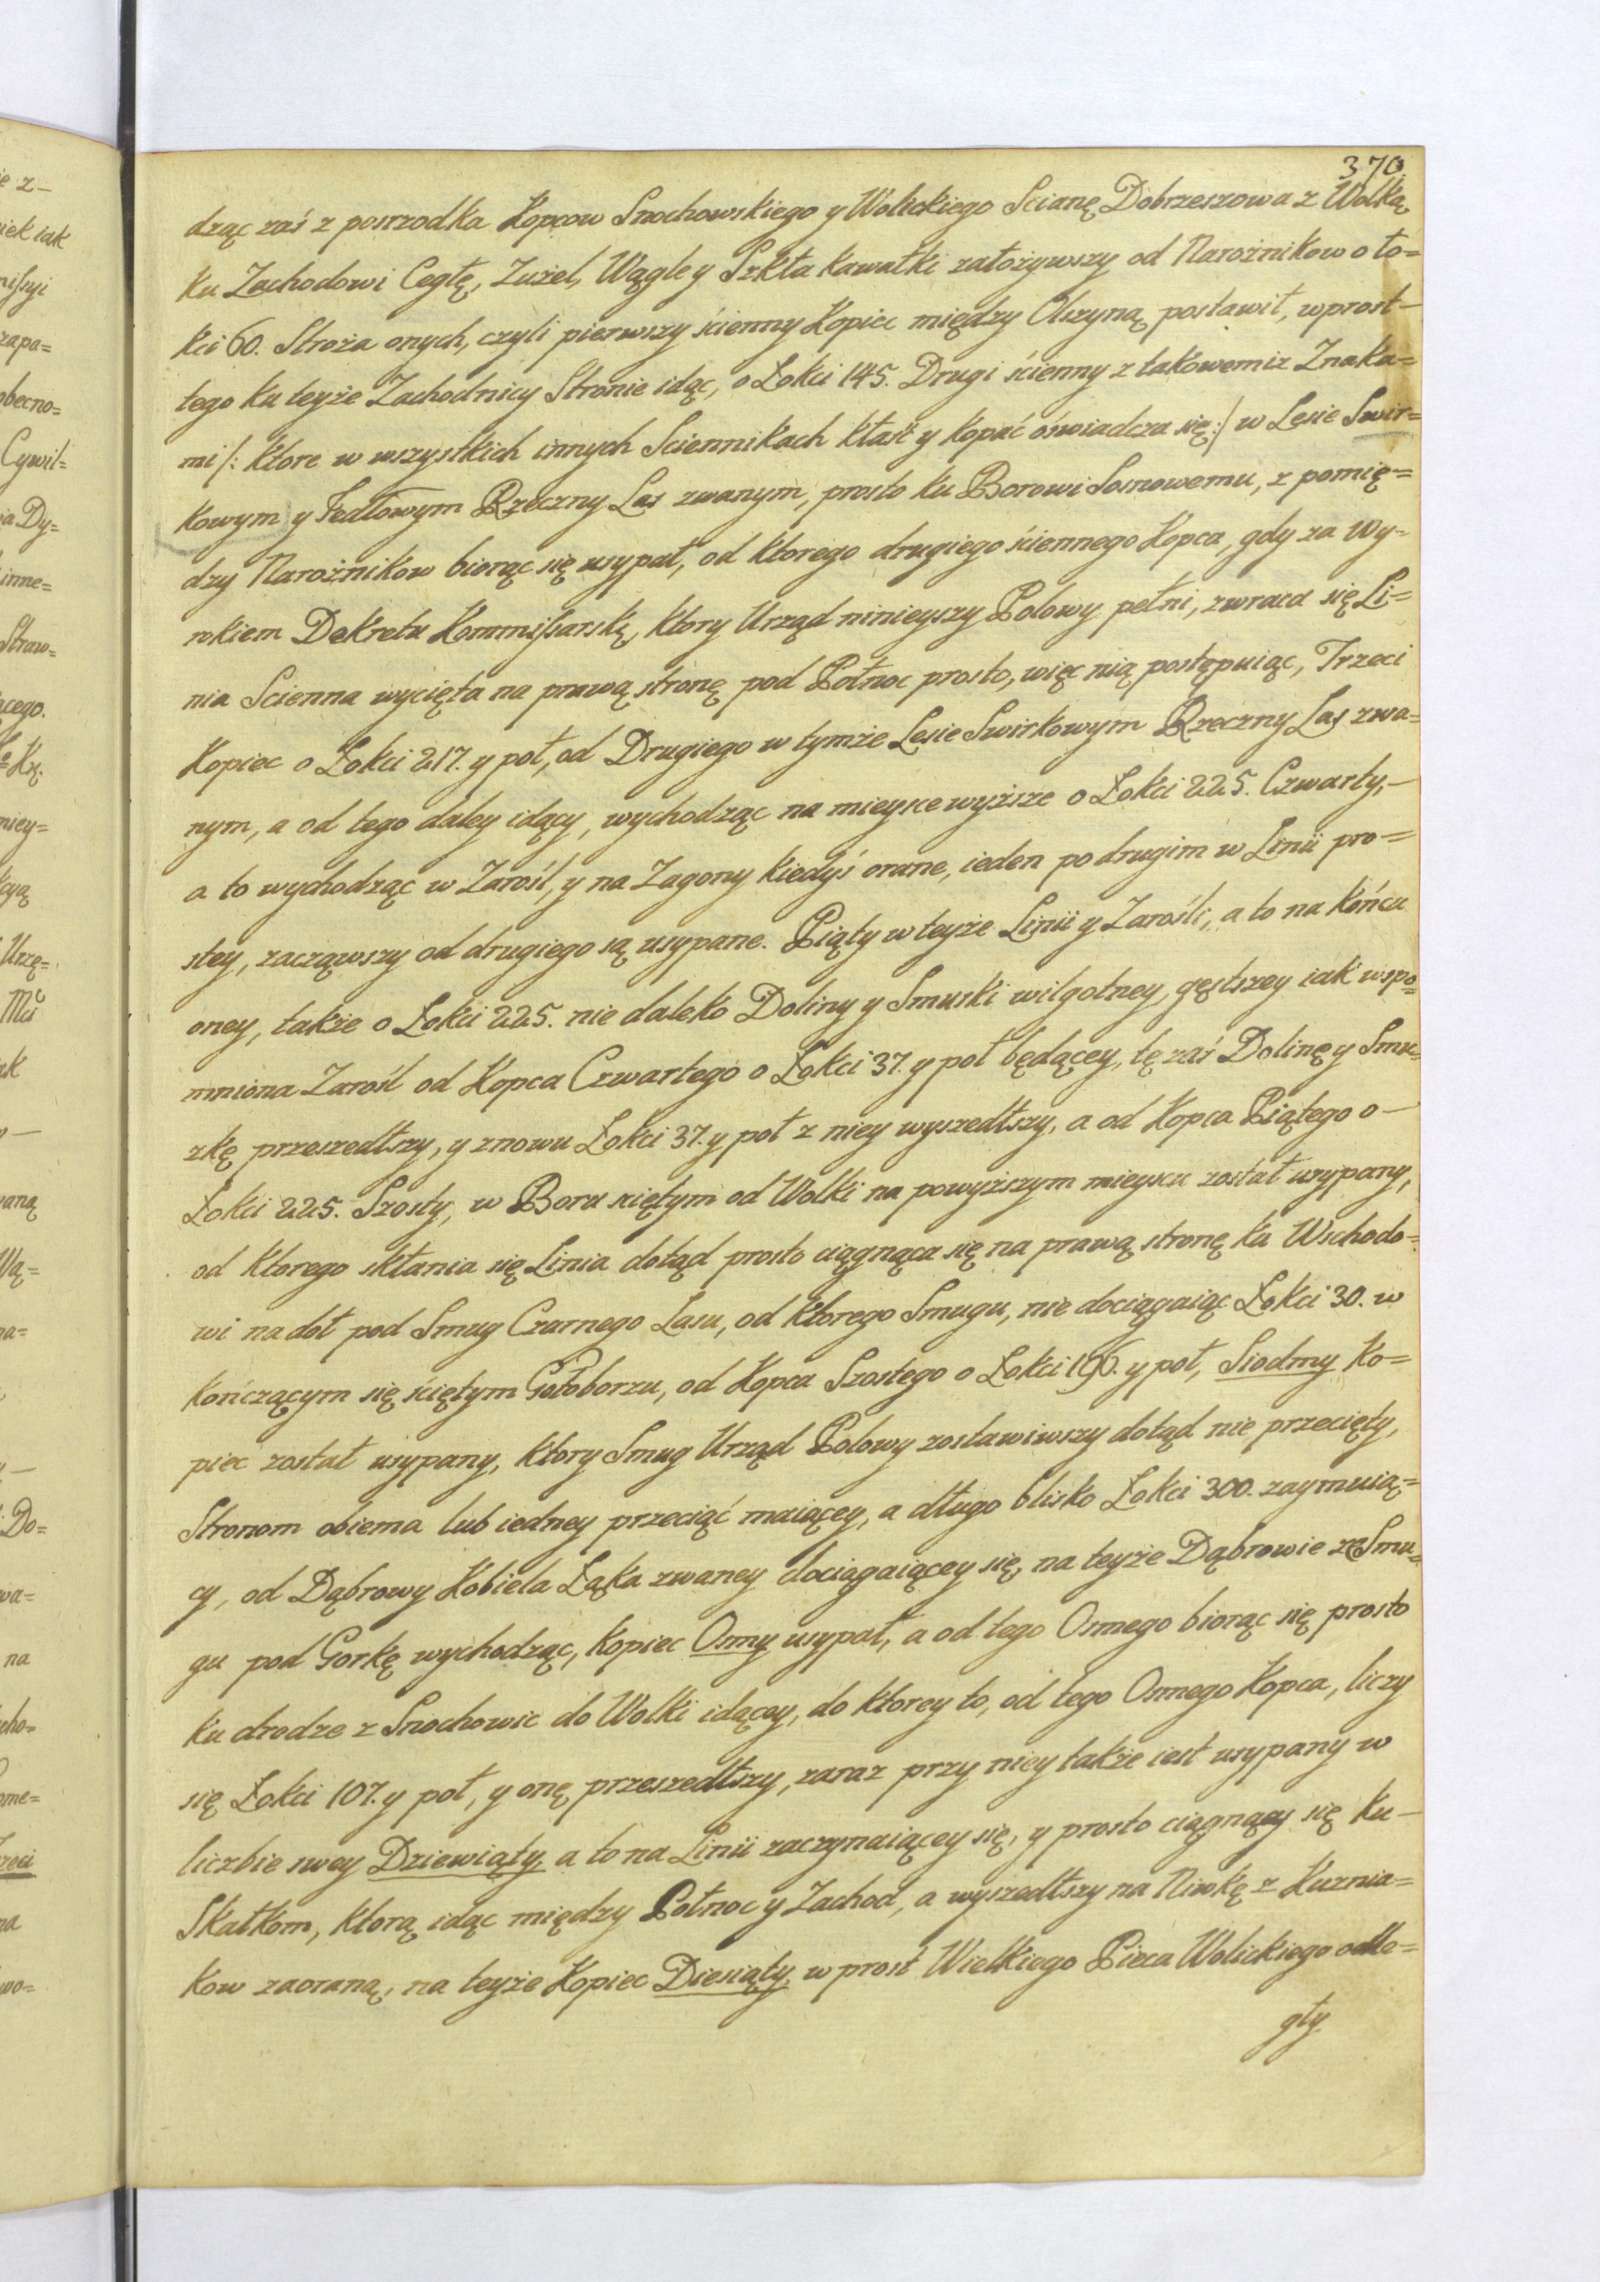 370.
dząc zaś z poszrodka Kopcow Snochowskiego y Wolickiego Scianę Dobrzeszowa z Wolką
ku Zachodowi Cegłę, Zużel, Wągle y Szkła kawałki założywszy od Narożnikow o ło=
kci 60. Stroża onych, czyli pierwszy ścienny Kopiec między Olszyną postawił, wprost
tego ku teyże Zachodnicy Stronie idąc, o Łokci 145. Drugi ścienny z takowemiz Znaka=
mi /: ktore w wszystkich innych Sciennikach kłaść y kopać oświadcza się :/ w Lesie Swir=
kowym y Jedłowym Rzeczny Las zwanym, prosto ku Borowi Sosnowemu, z pomię=
dzy Narożnikow biorąc się usypał, od ktorego drugiego ściennego Kopca, gdy za Wy=
rokiem Dekretu Kommissarską, ktory Urząd ninieyszy Polowy pełni, zwraca się Li=
nia Scienna wycięta na prawą stronę pod Połnoc prosto, więc nią postępuiąc, Trzeci
Kopiec o Łokci 217. y poł, od Drugiego w tymże Lesie Swirkowym Rzeczny Las zwa=
nym, a od tego daley idący, wychodząc na mieysce wyższe o Łokci 225. Czwarty,
a to wychodząc w Zarośl, y na Zagony kiedyś orane, ieden po drugim w Linii pro=
stey, zacząwszy od drugiego są usypane. Piąty w teyże Linii y Zarośli, a to na końcu
oney, także o Łokci 225. nie daleko Doliny y Smuski wilgotney, gęstszey iak wspo=
mniona Zarośl od Kopca Czwartego o Łokci 37. y poł będącey, tę zaś Dolinę y Smu=
zkę przeszedłszy, y znowu Łokci 37. y poł z niey wyszedłszy, a od Kopca Piątego o
Łokci 225. Szosty, w Boru ściętym od Wolki na powyższym mieyscu został usypany,
od ktorego skłania się Linia dotąd prosto ciągnąca się na prawą stronę ku Wschodo=
wi na doł pod Smug Czarnego Lasu, od ktorego Smugu, nie dociągaiąc Łokci 30. w
kończącym się ściętym Gołoborzu, od Kopca Szostego o Łokci 196. y poł, Siodmy Ko=
piec został usypany, ktory Smug Urząd Polowy zostawiwszy dotąd nie przecięty,
Stronom obiema lub iedney przeciąć maiącey, a długo blisko Łokci 300. zaymuią=
cy, od Dąbrowy Kobiela Łąka zwaney dociągaiącey się, na teyże Dąbrowie ze Smu=
gu pod Gorkę wychodząc, Kopiec Osmy usypał, a od tego Osmego biorąc się prosto
ku drodze z Snochowic do Wolki idącey, do ktorey to, od tego Osmego Kopca, liczy
się Łokci 107. y poł, y onę przeszedłszy, zaraz przy niey także iest usypany w
liczbie swey Dziewiąty, a to na Linii zaczynaiącey się, y prosto ciągnący się ku
Skałkom, ktorą idąc między Połnoc y Zachod, a wyszedłszy na Niwkę z Kuznia=
kow zaoraną, na teyże Kopiec Diesiąty, wprost Wielkiego Pieca Wolickiego odle=
gły.